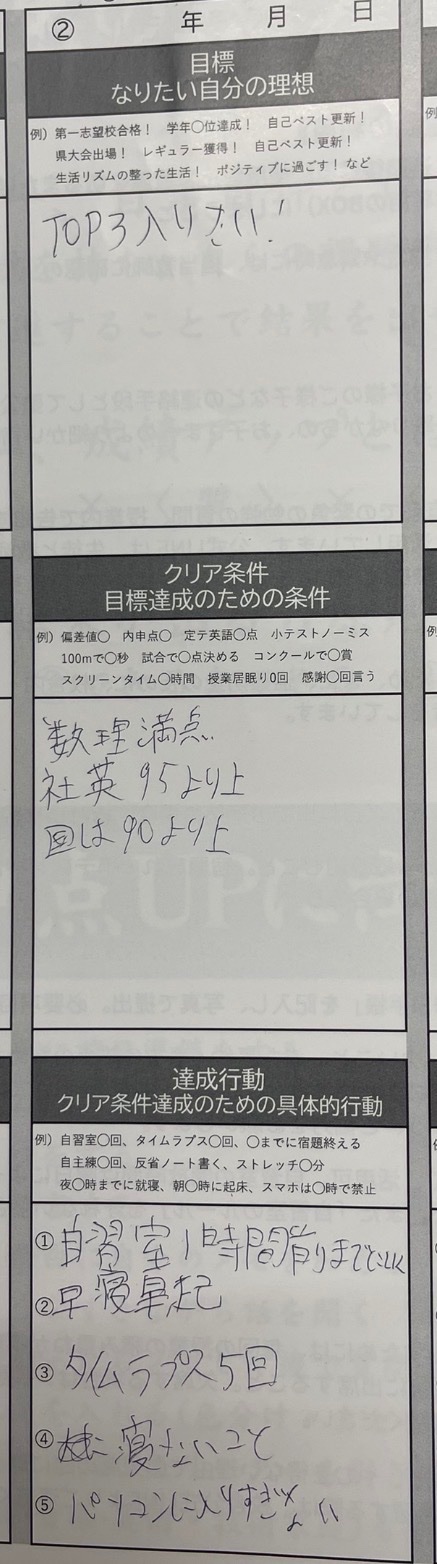 ② 年 月 日
目標
なりたい自分の理想
例）第一志望校合格！ 学年〇位達成！ 自己ベスト更新！
県大会出場！ レギュラー獲得！ 自己ベスト更新！
生活リズムの整った生活！ ポジティブに過ごす！など
TOP3入りたい！
クリア条件
目標達成のための条件
例）偏差値〇 内申点〇 定テ英語〇点 小テストノーミス
100mで〇秒 試合で〇点決める コンクールで〇賞
スクリーンタイム〇時間 授業居眠り0回 感謝〇回言う
数理満点
社英95より上
国は90より上
達成行動
クリア条件達成のための具体的行動
例）自習室〇回、タイムラプス〇回、〇までに宿題終える
自主練〇回、反省ノート書く、ストレッチ〇分
夜〇時までに就寝、朝〇時に起床、スマホは〇時で禁止
①自習室1時間前
②早寝早起
③タイムラプス5回
④寝ないこと
⑤パソコンに入りすぎない